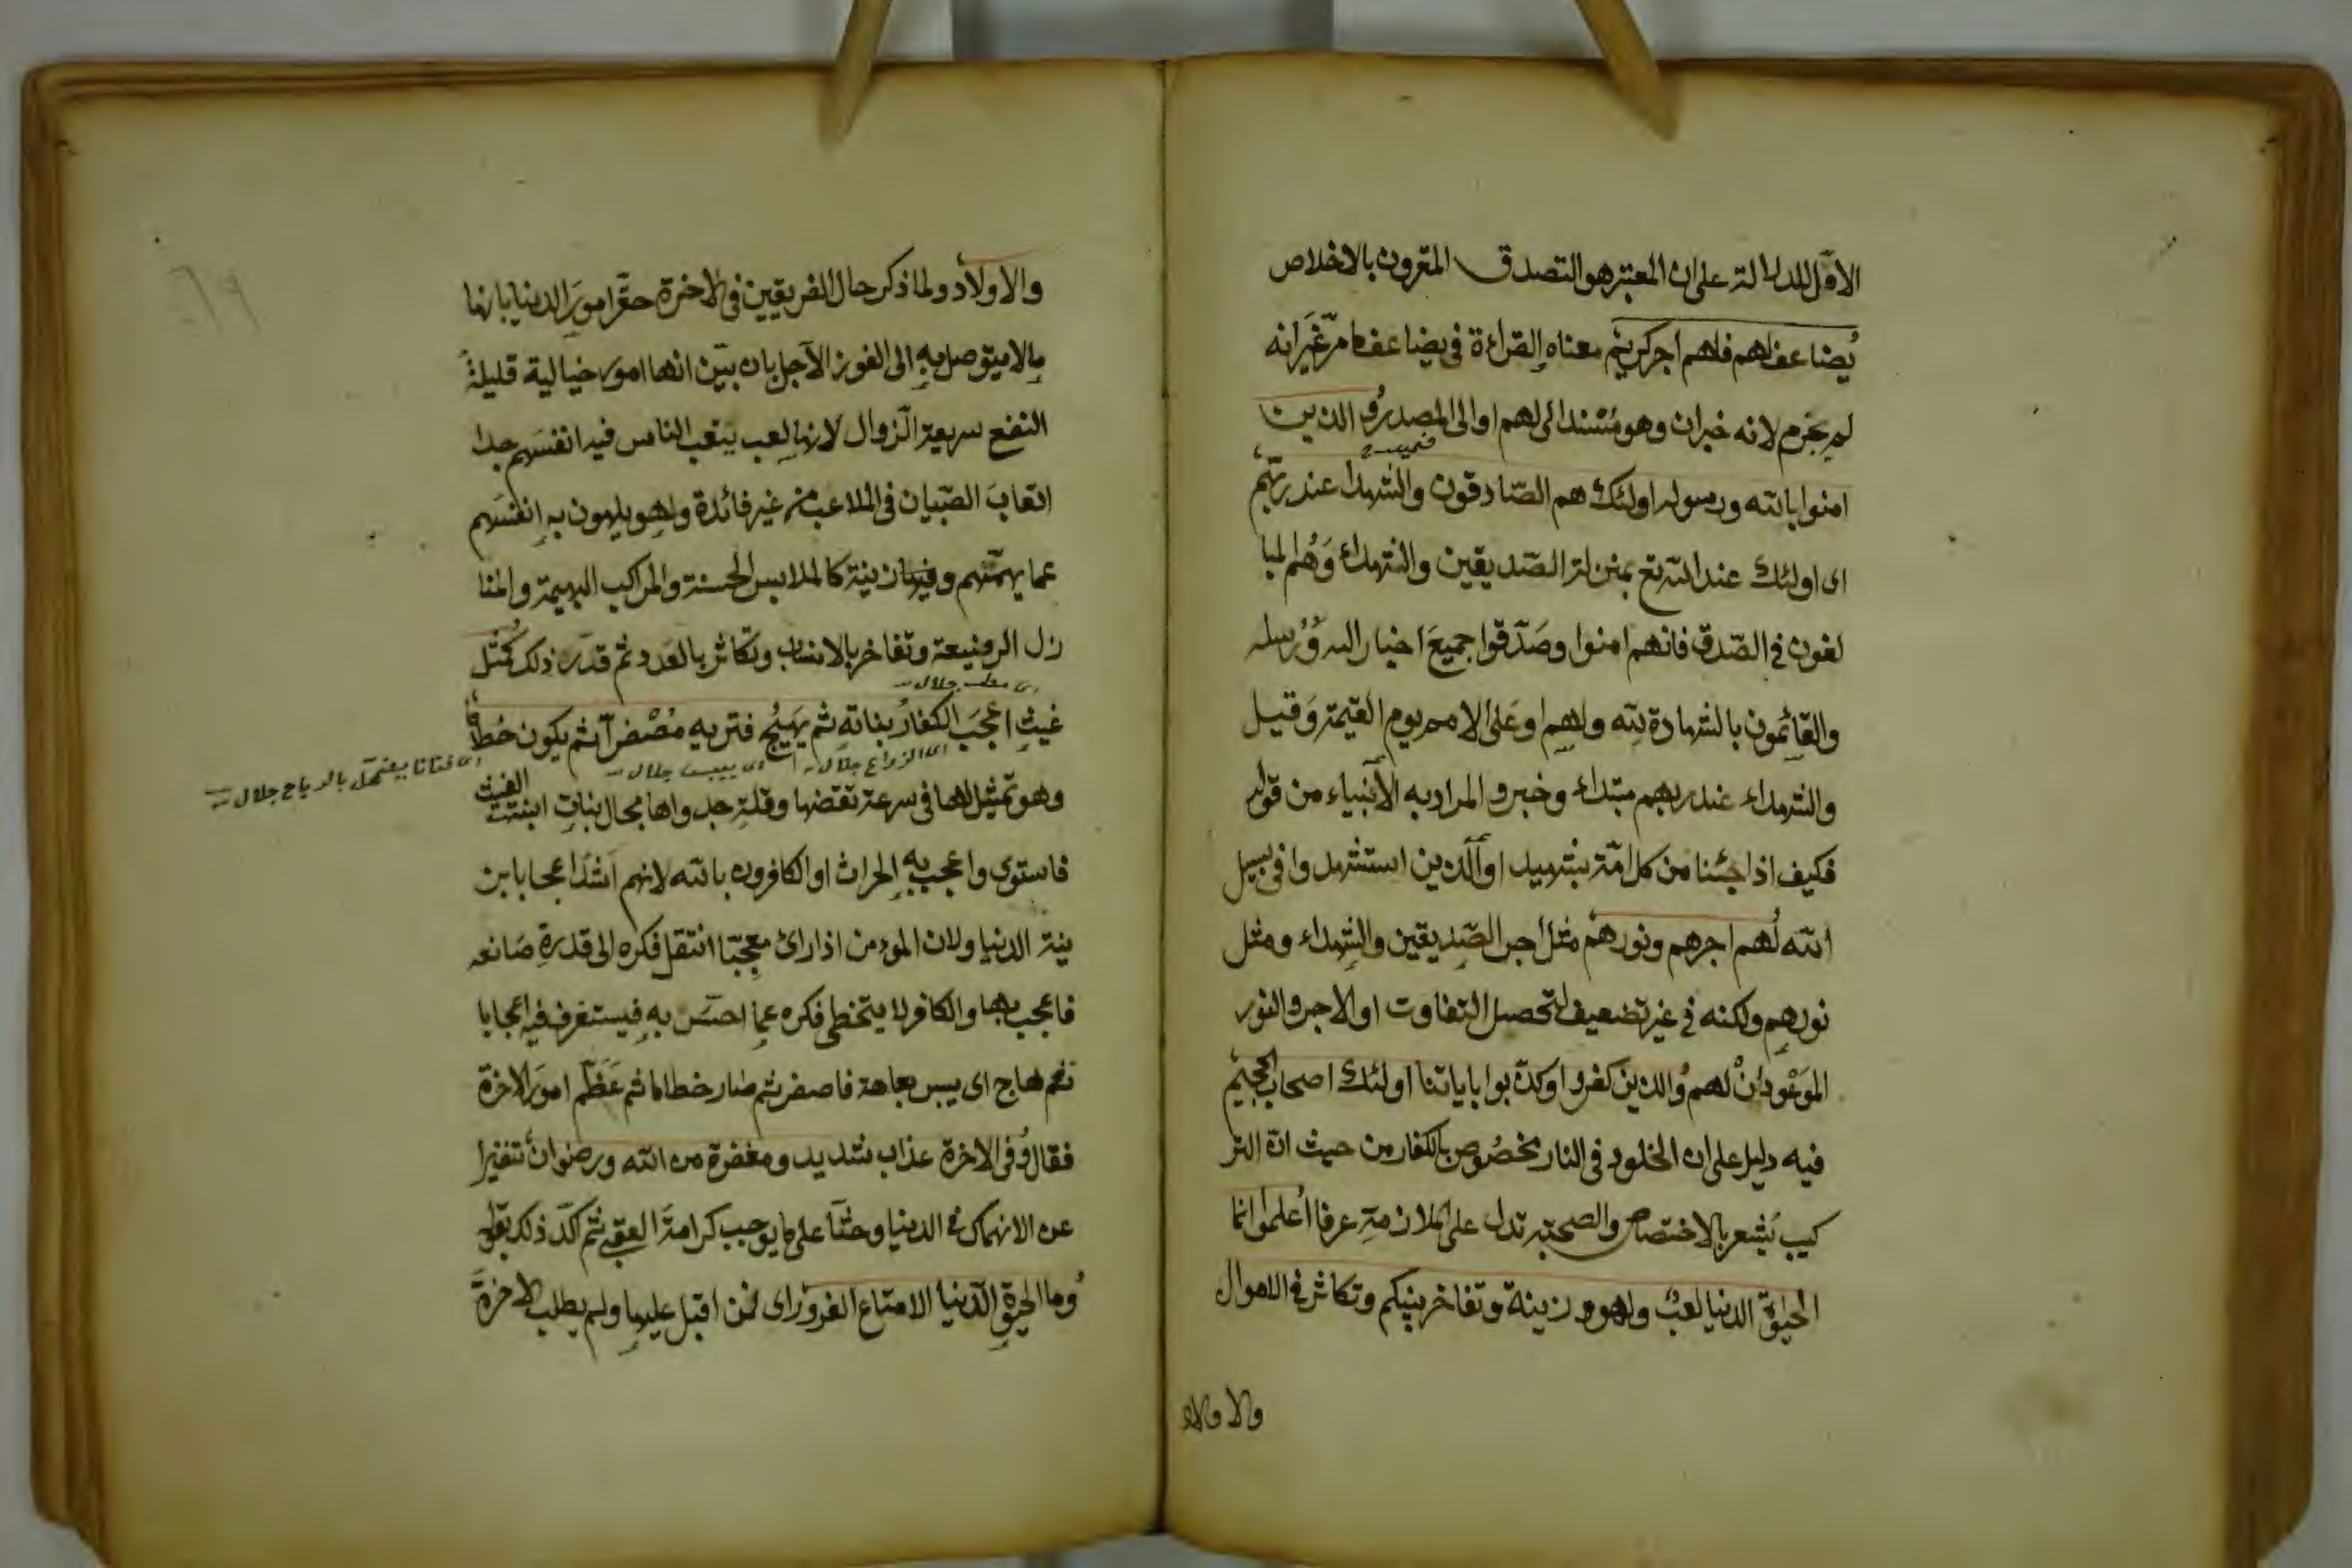 الاوّل للدلالة على ان المعتبر هو التصدق المقرون بالاخلاص
يُضاعف لهم فلهم اجر كريم معناه والقراءة فى يضاعف ما مر غَيرَ انه
لم يجزم لانه خبر ان وهو مُسْند الى لهم او الى المصدر وُالذين
امنوا بالله ورسوله اولئك هم الصّادقون والشهداء عند ربّهم
اى اولئك عند الله تع بمنزلة الصّديقين والشهداء وَهُم المبا
لغون فى الصّدق فانهم امنوا وصَدّقوا جميعَ اخبار الله وَرُسله
والقائمون بالشهادة لله ولهم او عَلى الامم يوم القيمة وَقيل
والشهداء عند ربهم مبتداء وخبر والمراد به الأنبياء من قوله
فكيف اذا جئنا من كل امّة بشهيد او الّذين استشهدوا فى سبيل
الله لُهم اجرهم ونورهم مثل اجر الصّديقين والشهداء ومثل
نورهم ولكنه فى غير تضعيف لتحصل التفاوت او الاجر والنور
المَوعُودانْ لهم وُالذين كفروا وكذّبوا باياتنا اولئك اصحاب الجحيم
فيه دليل على ان الخلود فى النار مخصُوص بالكفار من حيث انّ التر
كيب يُشعر بالاختصاص والصحبة تدل على الملازمةِ عرفا اُعلموا انما
الحيوة الدنيا لعبٌ ولهو وزينة وتفاخر بينكم وتكاثر فى الاموال
والاولاد
والاولاد ولما ذكر حال الفريقين فى الاخرة حقّر امورَ الدنيا بانها
مالا يتوصل به الى الفوز الآجل بان بيّن انها امور خيالية قليلة
النفع سريعة الزّوال لانها لعب يتعب الناس فيه انفسَهم جدا
اتعابَ الصّبيان فى الملاعب من غير فائدة ولهو يلهون به انفسَهم
عما يهمّهم وفيها زينة كالملابس الحسنة والمراكب البهيمة والمنا
زل الرفيعة وتفاخر بالانساب وتكاثر بالعَدد ثم قدّر ذلك كُمثل
جلال
غيث اعجَبَ الكفارُ نباته ثم يَهيُج فتريه مُصْفرّا ثم يكون حُطاما
اى الزراع جلال
اى ييبس جلال
اى فتاتا يضمحل بالرياح جلال
وهو تمثيل لها فى سرعة تقضها وقلةِ جدواها بحال نباتٍ انبته الغيث
فاستوى واعجب به الحراث او الكافرون بالله لانهم اشَدّ اعجابا بز
ينة الدنيا ولان المؤمن اذا رائ معجبًا انتقل فكره الى قدرةِ صَانعه
فاعجب بها والكافر لا يتخطى فكره عما احسّ به فيستغرف فيه اعجابا
ثم هاج اى يبس بعاهة فاصفر ثم صار حطاما ثم عَظّم امورَ الاخرة
فقال وُفى الاخرة عذاب شديد ومغفرة من الله ورضوان تنفيرا
عن الانهماك فى الدنيا وحثّا على ما يوجب كرامةَ العقبى ثم اكّد ذلك بقوله
وُما الحيوة الدّنيا الا متاع الغرور اى لمن اقبل عليها ولم يطلب الاخرةَ